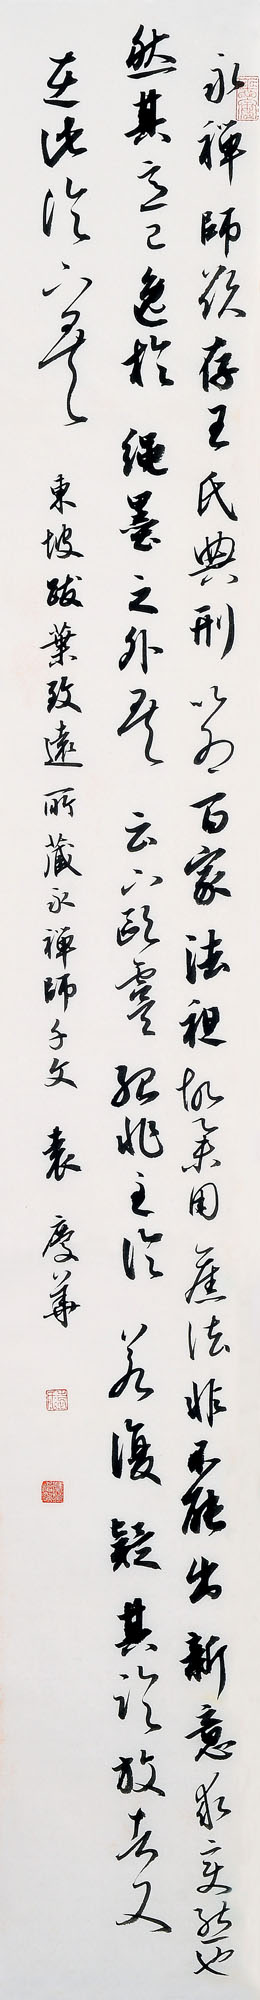 永禪師欲存王氏典刑以為百家法祖故舉用舊法非不能出新意求變態也
然其意已逸於繩墨之外矣云下歐虞殆非至論若復疑其臨放者又
在此論下矣 東坡跋葉致遠所藏永禪師千文 袁慶華